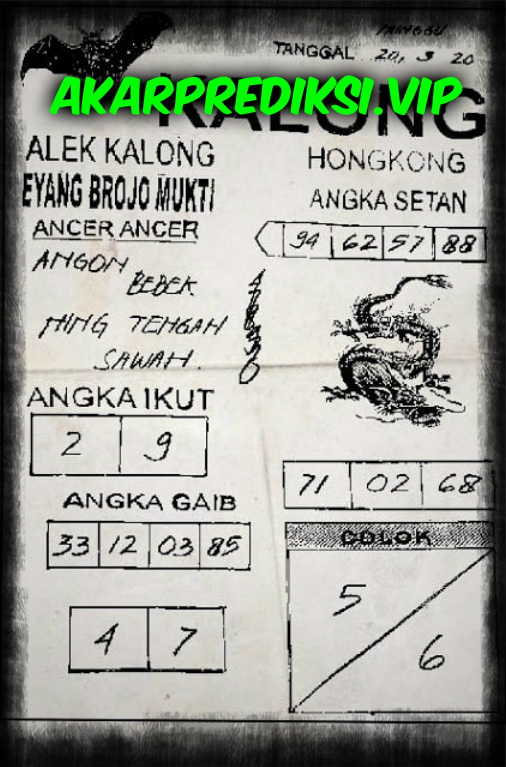 MINGGU
TANGGAL 20, 3 20
AKARPREDIKSI.VIP
KALONG
ALEK KALONG
EYANG BROJO MUKTI
ANCER ANCER
ANGON
BEBEK
NING TENGAH
SAWAH.
ANGKA IKUT
2 9
ANGKA GAIB
33 12 03 85
4 7
HONGKONG
ANGKA SETAN
94 62 57 88
71 02 68
COLOK
5
6